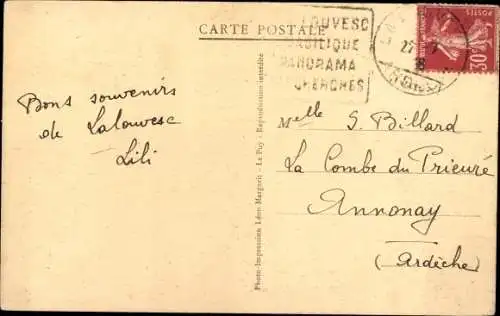 CARTE POSTALE
LOUVESC
BASILIQUE
PANORAMA
30c
POSTES
Bons souvenirs
de Lalouvesc
Lili
Melle S. Billard
La Combe du Prieuré
Annonay
(Ardèche)
Photo-Impression Léon Margerit - Le Puy - Reproduction interdite